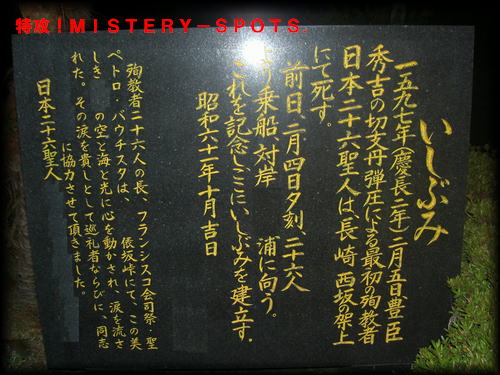 特攻！ＭＩＳＴＥＲＹ－ＳＰＯＴＳ
いしぶみ
一五九七年（慶長二年）二月五日豊臣
秀吉の切支丹弾圧による最初の殉教者
日本二十六聖人は、長崎 西坂の架上
にて死す。
前日、二月四日夕刻、二十六人
り乗船、対岸 浦に向う。
これを記念し、ここにいしぶみを建立す。
昭和六十一年十月吉日
殉教者二十六人の長、フランシスコ会司祭・聖
ペトロ・バウチスタは、 俵坂峠にて、この美
しき の空と海と光に心を動かされ、涙を流さ
れた。その涙を貴しとして巡礼者ならびに、同志
に協力させて頂きました。
日本二十六聖人